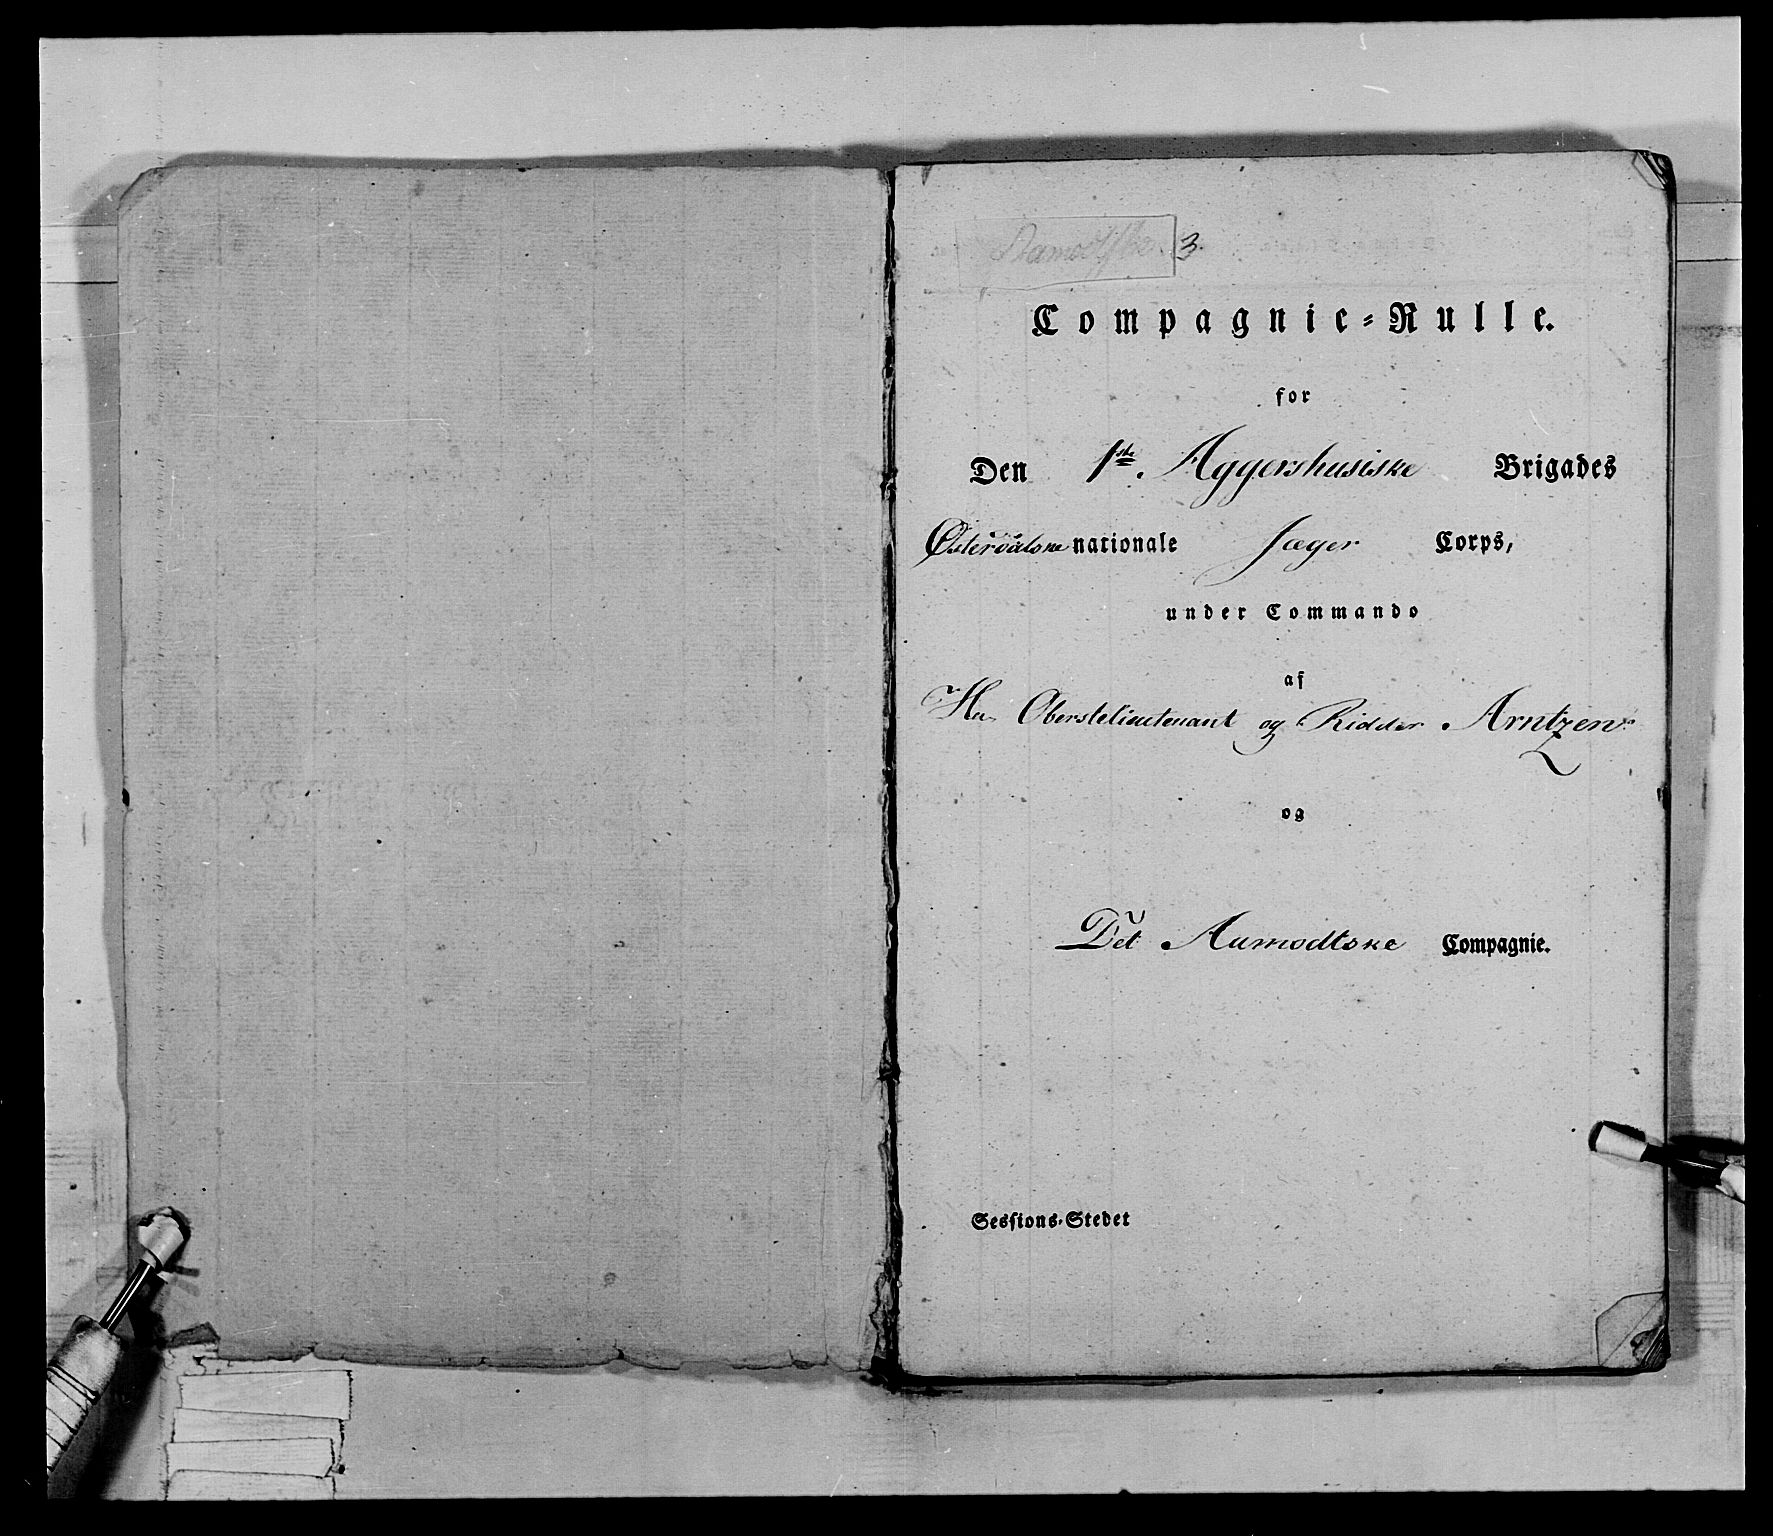 3.
Compagnie-Rulle.
for
Den 1ste. Aggershusiske Brigades
Østerdalske nationale Jæger Corps,
under Commando
af
Hr. Oberstelieutenant og Ridder Arntzen
og
Det Aamodtske Compagnie.
Sessions-Stedet